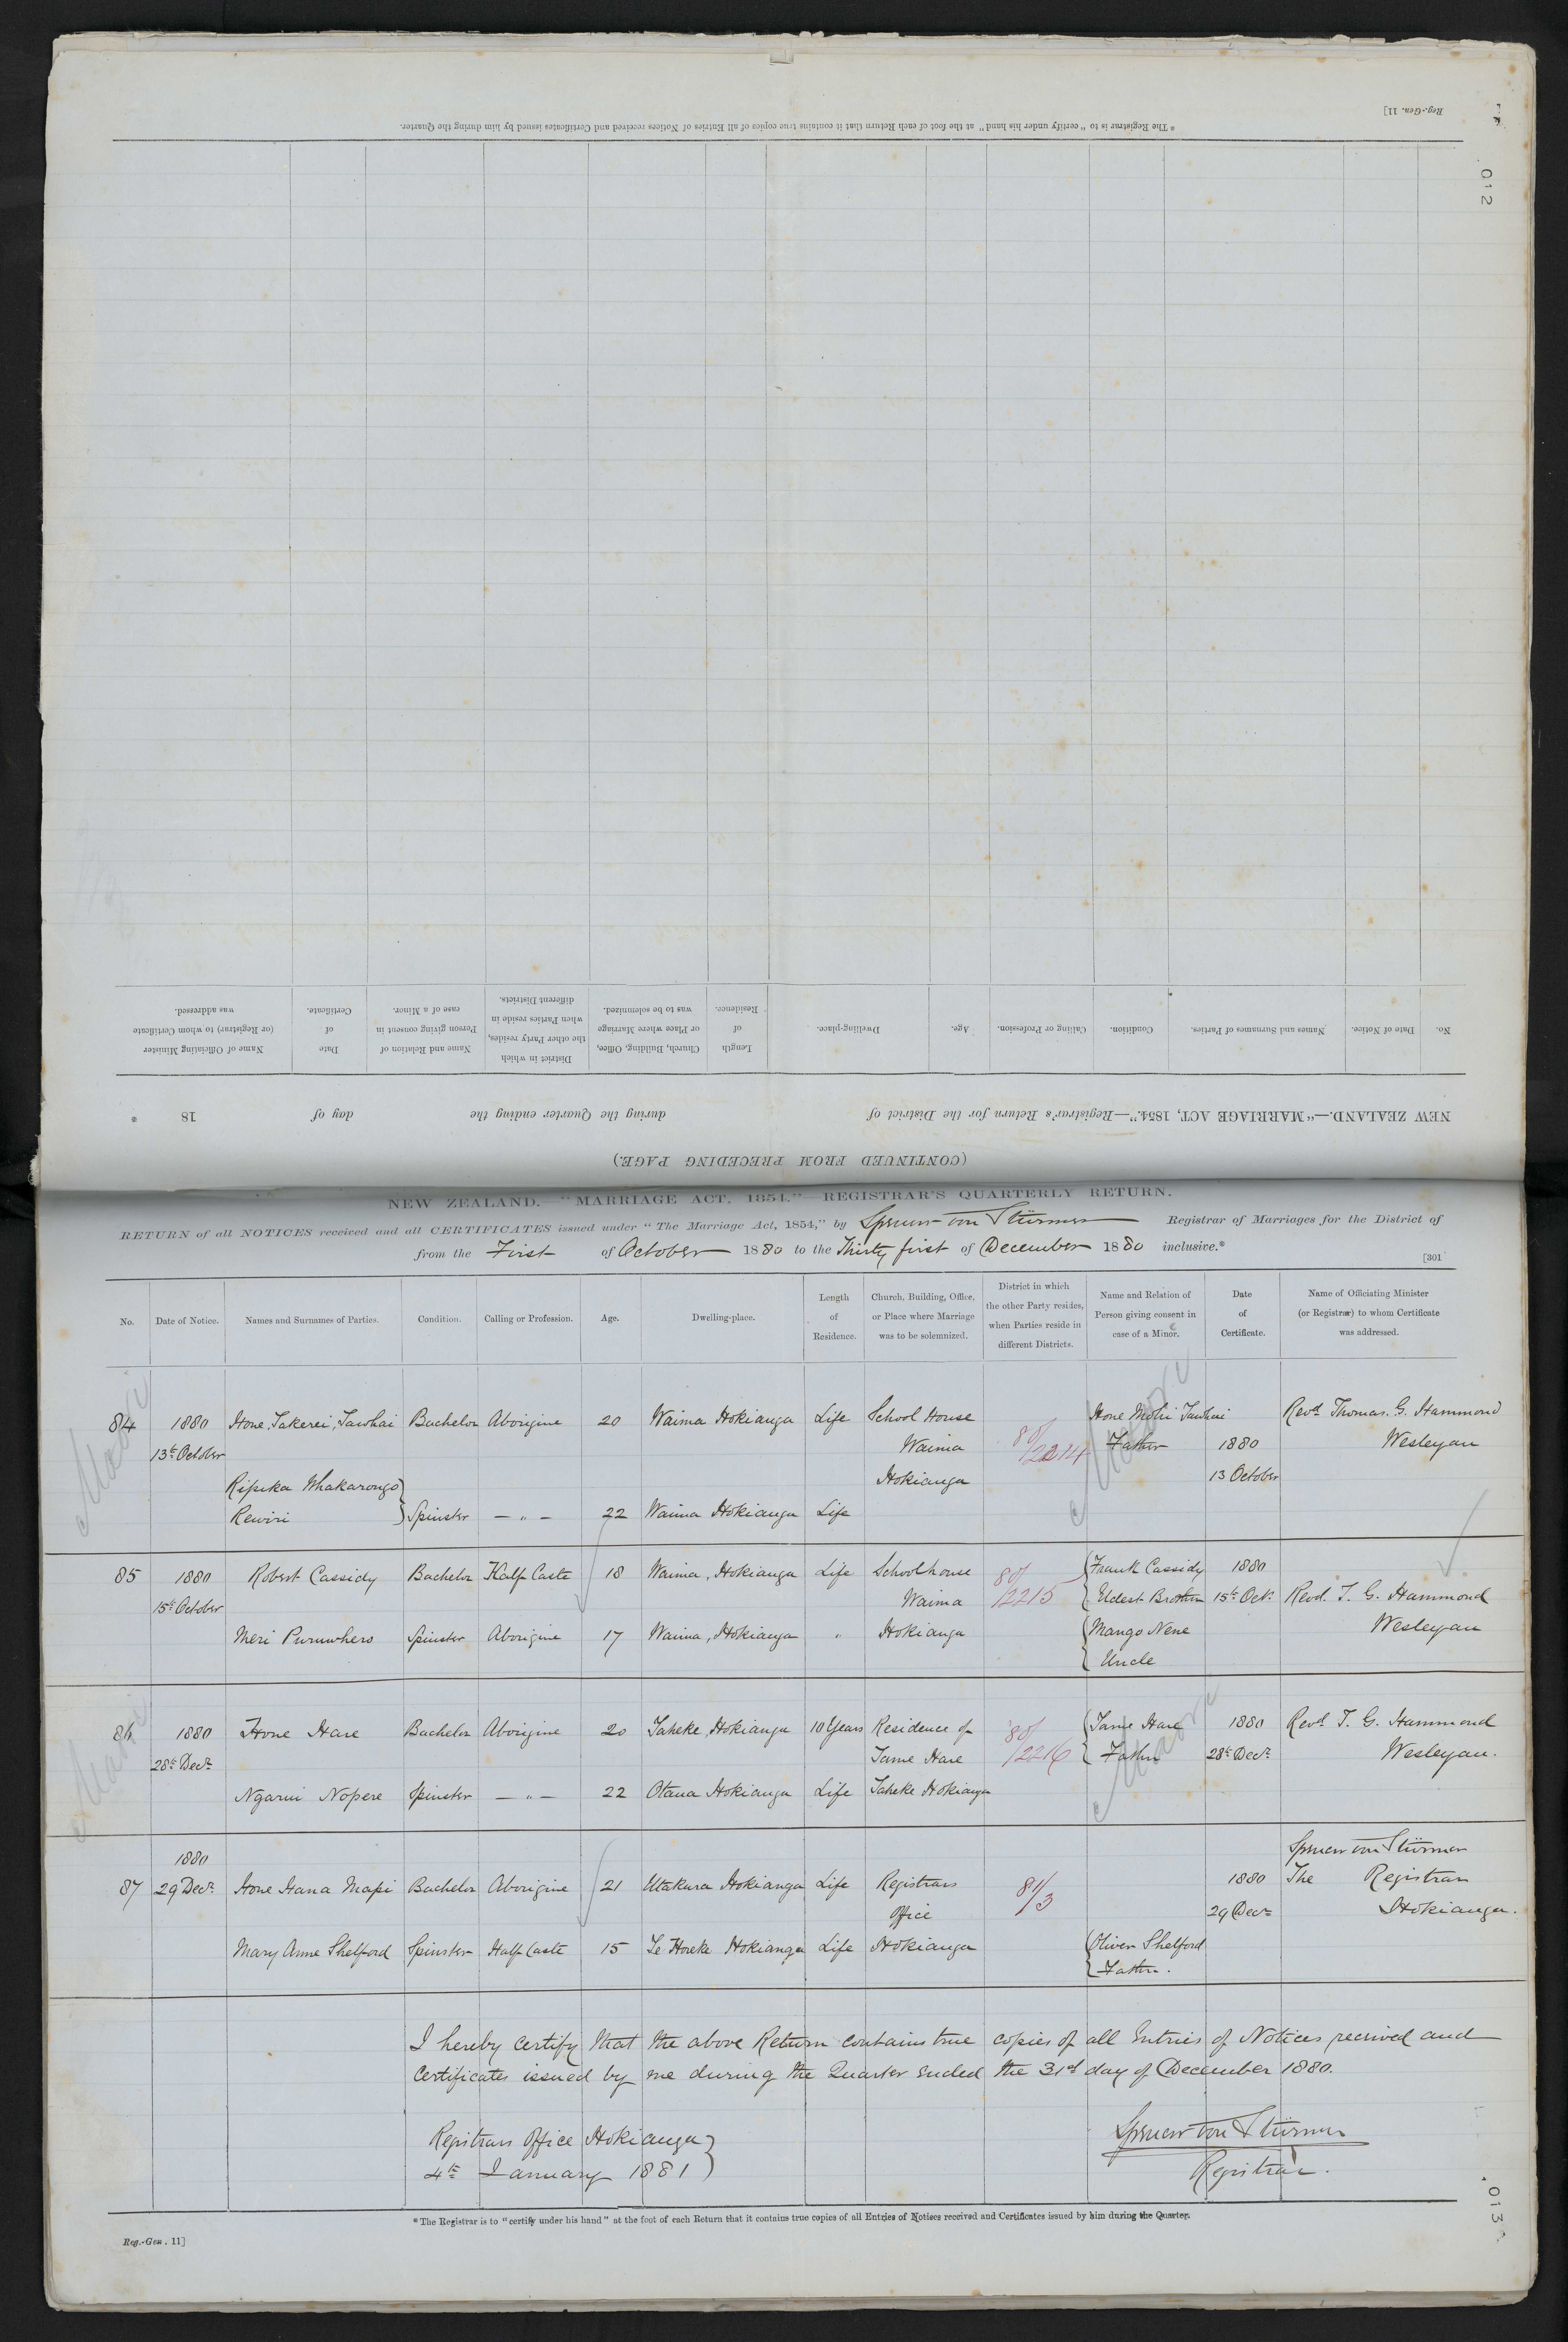 Reg.-Gen. 11]
*The Registrar is to "certify under his hand" at the foot of each Return that it contains true copies of all Entries of Notices received and Certificates issued by him during the Quarter.
012
No.
Date of Notice.
Names and Surnames of Parties.
Condition.
Calling or Profession.
Age.
Dwelling-place.
Length of Residence.
Church, Building, Office, or Place where Marriage was to be solemnized.
District in which the other Party resides, when Parties reside in different Districts.
Name and Relation of Person giving consent in case of a Minor.
Date of Certificate.
Name of Officiating Minister (or Registrar) to whom Certificate was addressed.
NEW ZEALAND.—"MARRIAGE ACT, 1854."—Registrar's Return for the District of during the Quarter ending the day of 18 *
(CONTINUED FROM PRECEDING PAGE.)
NEW ZEALAND.—"MARRIAGE ACT, 1854."—REGISTRAR'S QUARTERLY RETURN.
RETURN of all NOTICES received and all CERTIFICATES issued under "The Marriage Act, 1854," by Spencer von Stürmer Registrar of Marriages for the District of
from the First of October 1880 to the Thirty first of December 1880 inclusive.*
[301
No.
Date of Notice.
Names and Surnames of Parties.
Condition.
Calling or Profession.
Age.
Dwelling-place.
Length of Residence.
Church, Building, Office, or Place where Marriage was to be solemnized.
District in which the other Party resides, when Parties reside in different Districts.
Name and Relation of Person giving consent in case of a Minor.
Date of Certificate.
Name of Officiating Minister (or Registrar) to whom Certificate was addressed.
Maori
Maori
84 1880 Hone Takerei Tawhai Bachelor Aborigine 20 Waima Hokianga Life School House Hone Mohi Tawhai Revd Thomas. G. Hammond
13th October Waima 80/2214 Father 1880 Wesleyan
Hokianga 13 October
Ripeka Whakarongo
Rewiri } Spinster — " — 22 Waima Hokianga Life
85 1880 Robert Cassidy Bachelor Half Caste 18 Waima, Hokianga Life Schoolhouse 80/2215 Frank Cassidy 1880
15th October Waima Eldest Brother 15th Oct. Revd. T. G. Hammond
Meri Puruwhero Spinster Aborigine 17 Waima, Hokianga " Hokianga Mango Nene Wesleyan
Uncle
Maori
Maori
86 1880 Hone Hare Bachelor Aborigine 20 Taheke, Hokianga 10 Years Residence of 80/2216 Tame Hare 1880 Revd T. G. Hammond
28th Decr. Tame Hare Father 28th Decr. Wesleyan.
Ngarui Nopere Spinster — " — 22 Otaua Hokianga Life Taheke Hokianga
1880 Spencer von Stürmer
87 29 Decr. Hone Hana Mapi Bachelor Aborigine 21 Utakura Hokianga Life Registrars 81/3 1880 The Registrar
Office 29 Decr. Hokianga.
Mary Anne Shelford Spinster Half Caste 15 Te Horeke Hokianga Life Hokianga Oliver Shelford
Father.
I hereby certify that the above Return contains true copies of all Entries of Notices received and
Certificates issued by me during the Quarter ended the 31st day of December 1880.
Registrars Office Hokianga
4th January 1881 }
Spencer von Stürmer
Registrar.
*The Registrar is to "certify under his hand" at the foot of each Return that it contains true copies of all Entries of Notices received and Certificates issued by him during the Quarter.
Reg.-Gen. 11]
013